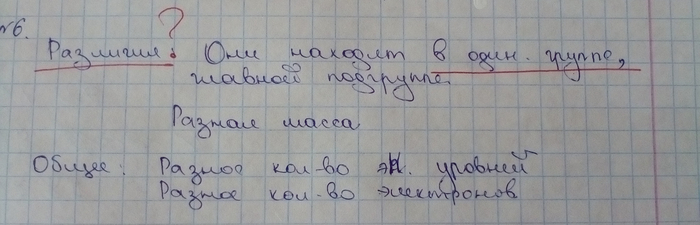 №6.
?
Различия: Они находят в один. группе,
главной подгруппе.
Разная масса
Общее: Разное кол-во эл. уровней
Разное кол-во электронов